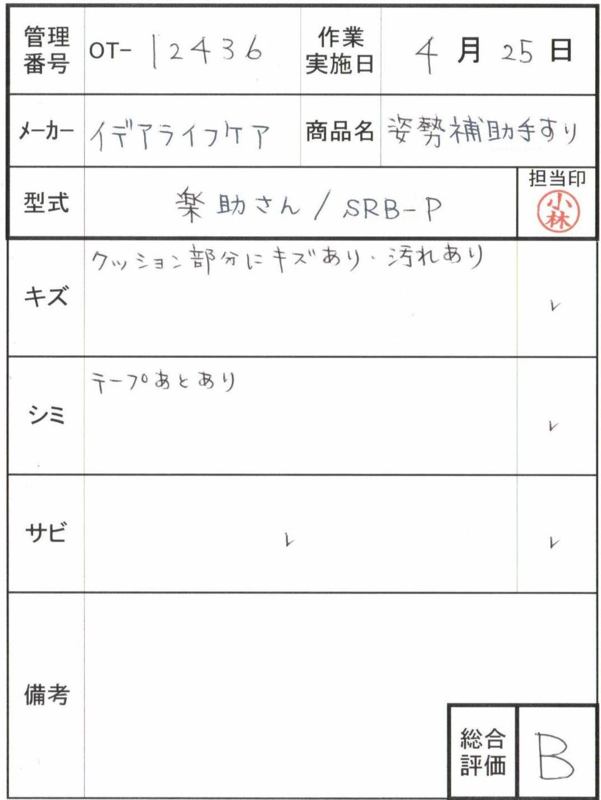 管理番号 OT- 12436 作業実施日 4月25日
メーカー イデアライフケア 商品名 姿勢補助手すり
型式 楽助さん/SRB-P 担当印 小林
キズ クッション部分にキズあり・汚れあり ✓
シミ テープあとあり ✓
サビ ✓ ✓
備考
総合評価 B